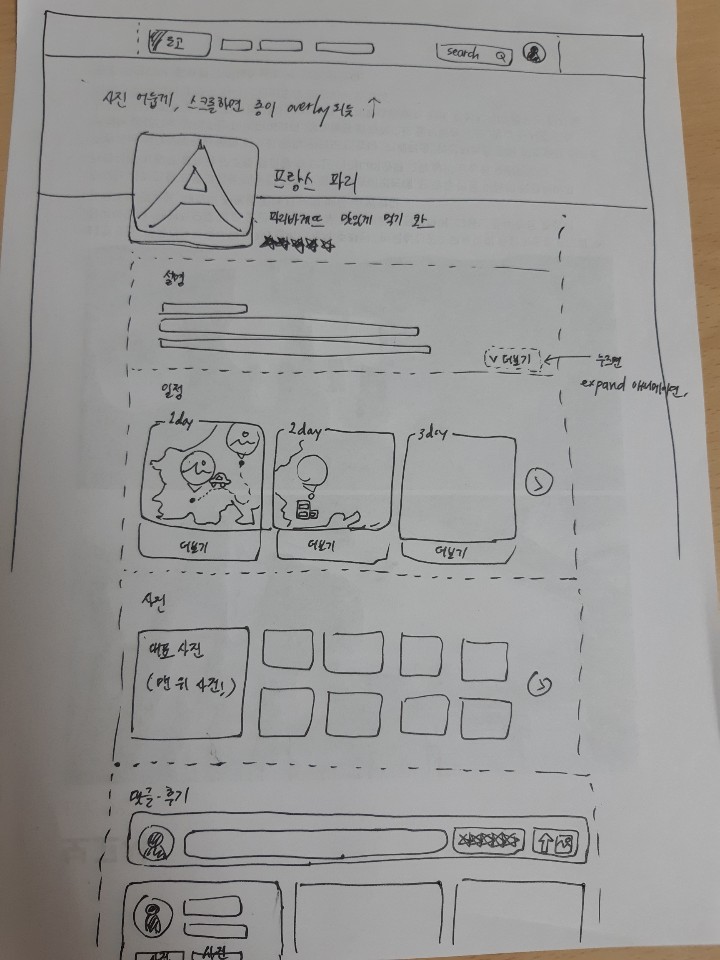 로고
search
사진 어둡게, 스크롤하면 종이 overlay되듯 ↑
프랑스 파리
파리바게뜨 맛있게 먹기 와
설명
∨ 더보기
누르면
expand 애니메이션.
일정
1day
2day
3day
더보기
더보기
더보기
사진
대표 사진
(맨 위 사진!)
댓글·후기
사진
사진